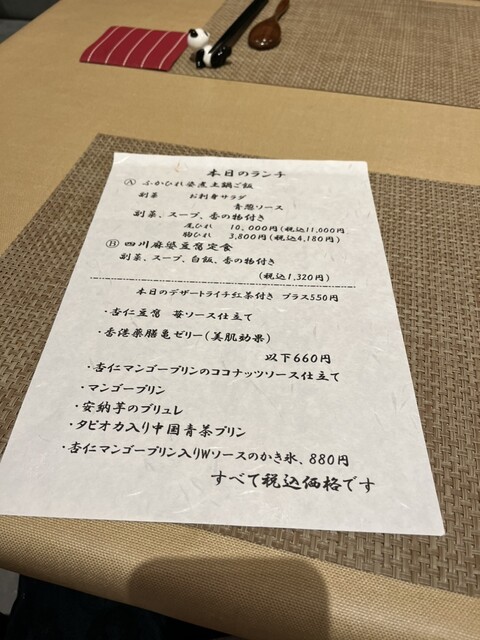 本日のランチ
Ⓐ ふかひれ姿煮土鍋ご飯
副菜 お刺身サラダ
青葱ソース
副菜、スープ、香の物付き
尾びれ 10,000円(税込11,000円
胸びれ 3,800円(税込4,180円)
Ⓑ 四川麻婆豆腐定食
副菜、スープ、白飯、香の物付き
(税込1,320円)
本日のデザートライチ紅茶付き プラス550円
・杏仁豆腐 苺ソース仕立て
・香港薬膳亀ゼリー(美肌効果)
以下660円
・杏仁マンゴープリンのココナッツソース仕立て
・マンゴープリン
・安納芋のブリュレ
・タピオカ入り中国青茶プリン
・杏仁マンゴープリン入りWソースのかき氷、880円
すべて税込価格です